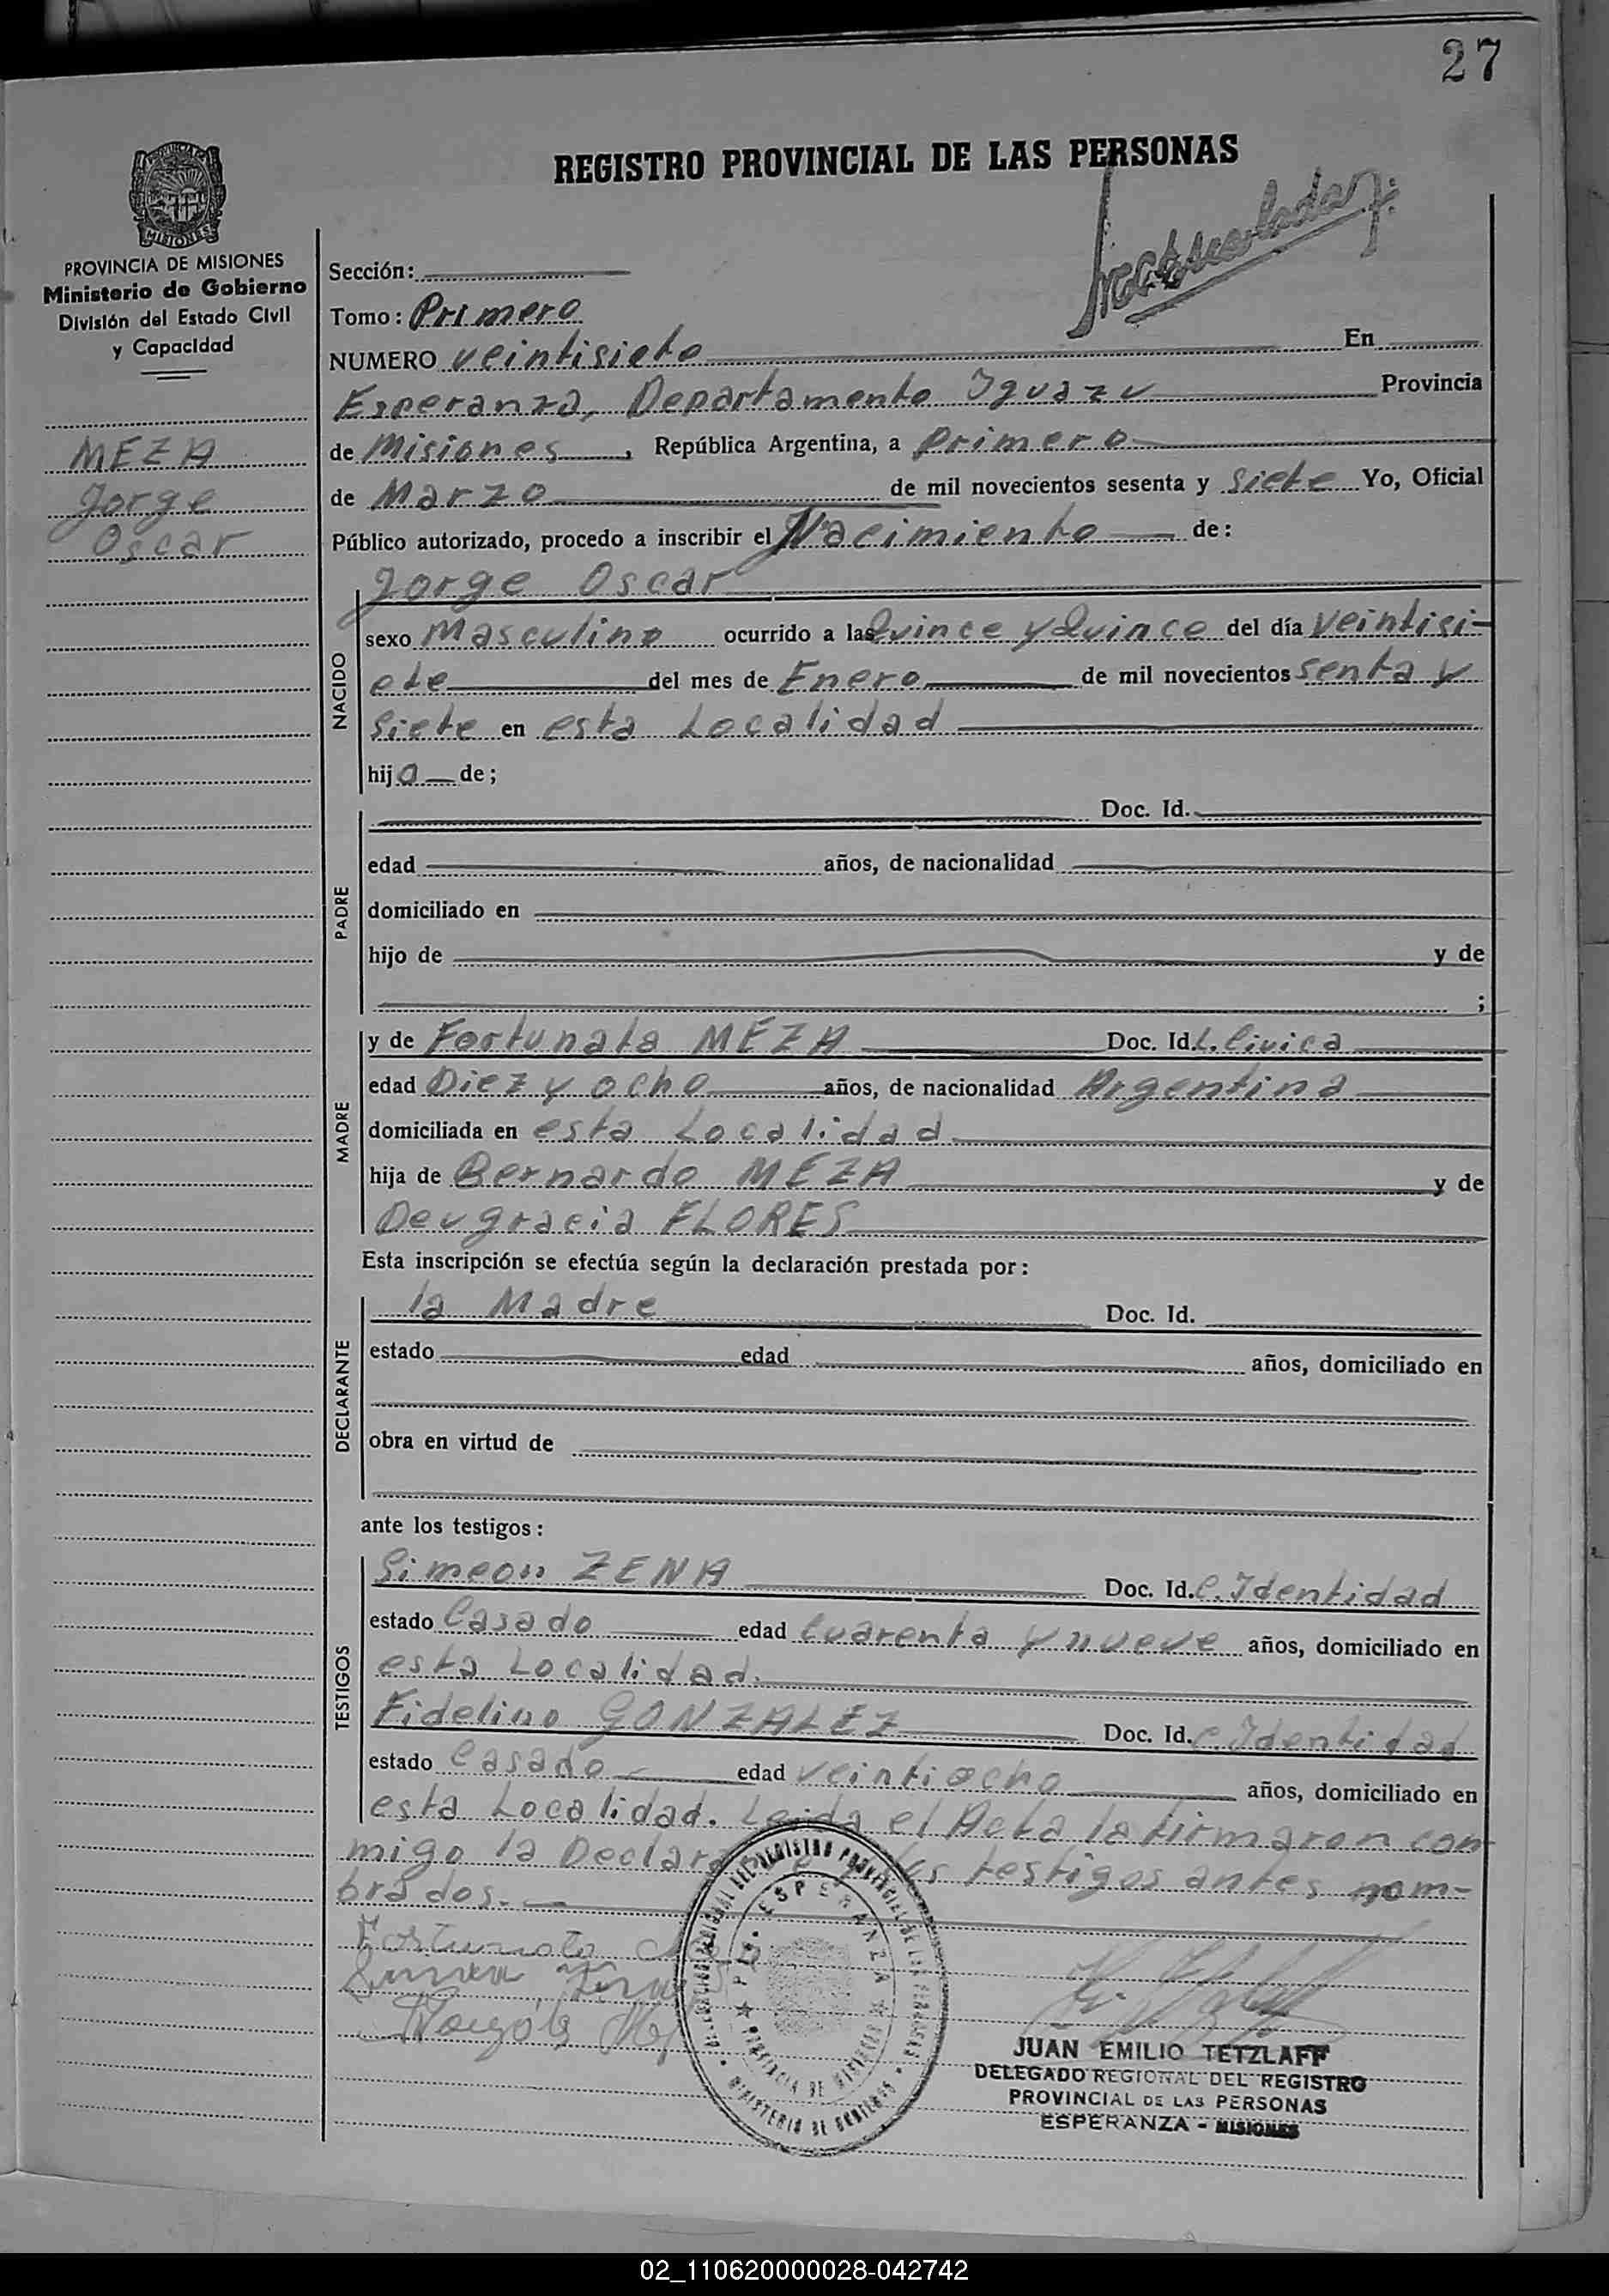 27
REGISTRO PROVINCIAL DE LAS PERSONAS
PROVINCIA DE MISIONES
MISIONES
PROVINCIA DE MISIONES
Ministerio de Gobierno
División del Estado Civil
y Capacidad
MEZA
Jorge
Oscar
Sección:
Tomo: Primero
NUMERO veintisiete En
Esperanza, Departamento Iguazu Provincia
de Misiones, República Argentina, a primero
de Marzo de mil novecientos sesenta y siete Yo, Oficial
Público autorizado, procedo a inscribir el Nacimiento de:
NACIDO
Jorge Oscar
sexo Masculino ocurrido a las Quince y Quince del día veintisi-
ete del mes de Enero de mil novecientos senta y
siete en esta Localidad
hijo de;
PADRE
Doc. Id.
edad años, de nacionalidad
domiciliado en
hijo de y de
;
MADRE
y de Fortunata MEZA Doc. Id. L. Civica
edad Diez y ocho años, de nacionalidad Argentina
domiciliada en esta Localidad
hija de Bernardo MEZA y de
Deugracia FLORES
Esta inscripción se efectúa según la declaración prestada por:
DECLARANTE
la Madre Doc. Id.
estado edad años, domiciliado en
obra en virtud de
ante los testigos:
TESTIGOS
Simeon ZENA Doc. Id. C. Identidad
estado Casado edad Cuarenta y nueve años, domiciliado en
esta Localidad.
Fidelino GONZALEZ Doc. Id. C. Identidad
estado Casado edad veintiocho años, domiciliado en
esta Localidad. Leida el Acta la firmaron con
migo la Declar los testigos antes nom-
brados.
Fortunata
ESPERANZA
PROVINCIA DE MISIONES
MINISTERIO DE GOBIERNO
JUAN EMILIO TETZLAFF
DELEGADO REGIONAL DEL REGISTRO
PROVINCIAL DE LAS PERSONAS
ESPERANZA - MISIONES
02_110620000028-042742